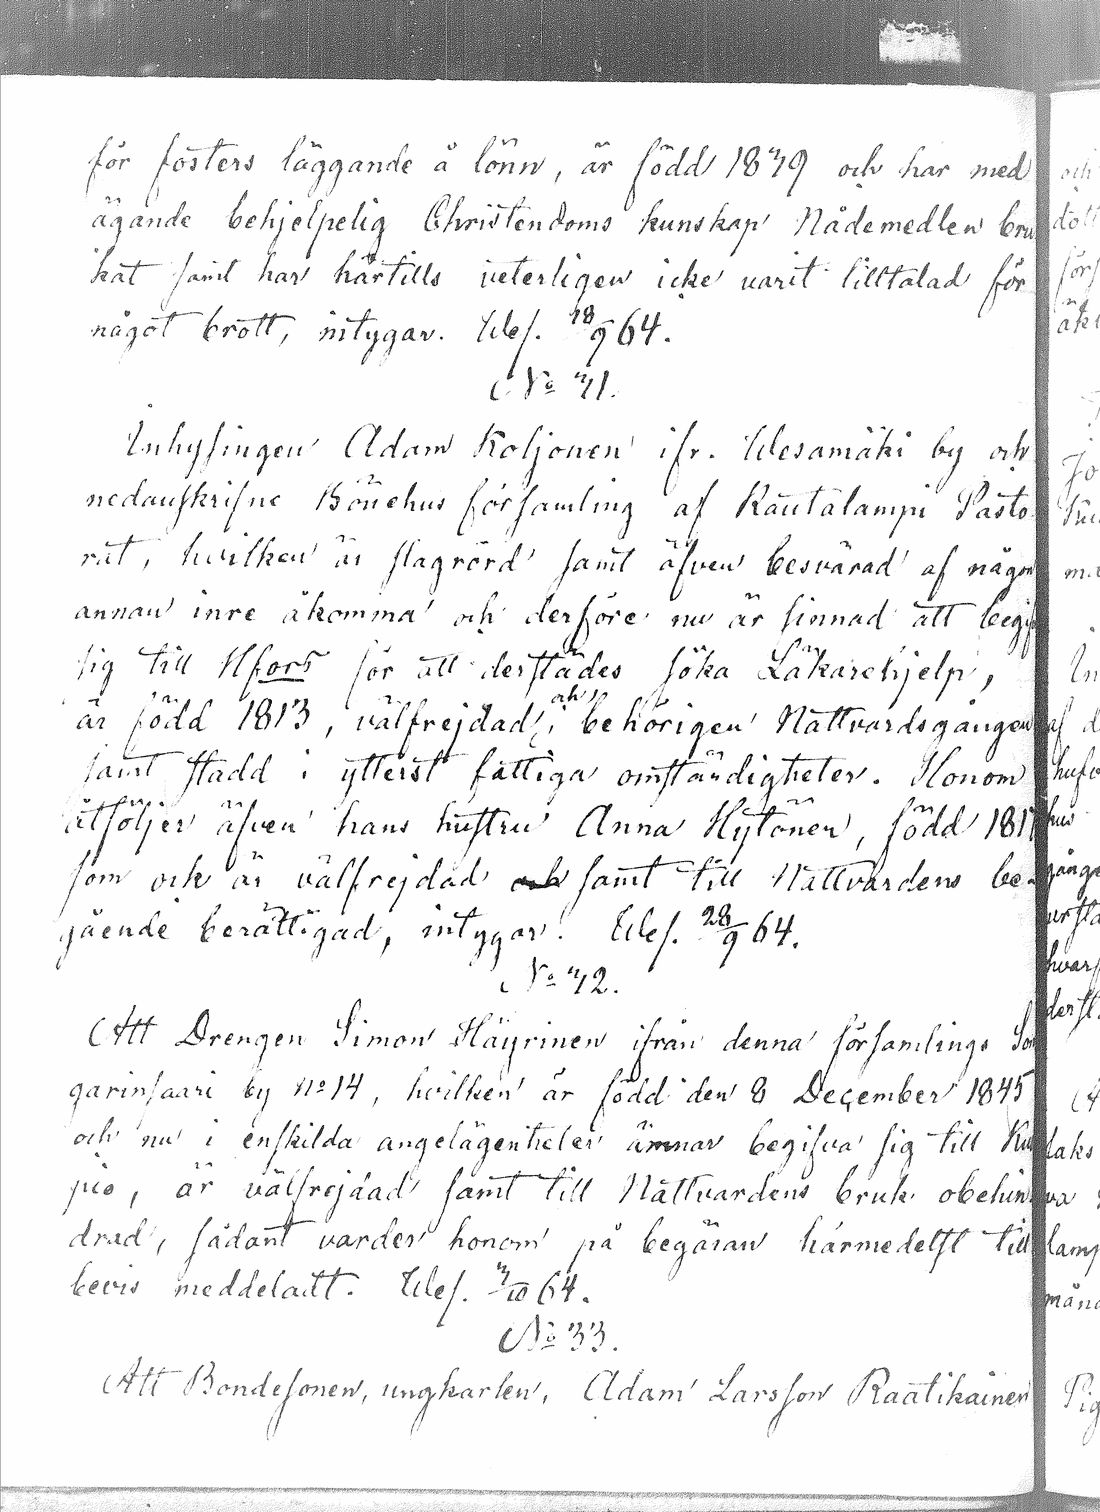 för fosters läggande å lönn, är född 1849 och har med
ägande behjelpelig Christendoms kunskap Nådemedlen bru
kat samt har härtills veterligen icke varit tilltalad för
något brott, intygar. Wes. 18/9 64.
No 41.
Inhysingen Adam Koljonen ifr. Wesamäki by och
nedanskrifne Bönehus församling af Rautalampi Pasto
rat, hvilken är slagrörd samt äfven besvärad af någon
annan inre åkomma och derföre nu är sinnad att begif
sig till Hfors för att derstädes söka Läkarehjelp,
är född 1813, välfrejdad, och behörigen Nattvardsgången
samt stadd i ytterst fattiga omständigheter. Honom
åtföljer äfven hans hustru Anna Hytönen, född 181
som ock är välfrejdad och samt till Nattvardens be-
gående berättigad, intygar. Wes. 28/9 64.
No 42.
Att Drengen Simon Häyrinen ifrån denna församlings Son
garinsaari by No 14, hvilken är född den 8 December 1845
och nu i enskilda angelägenheter ämnar begifva sig till Ku
pio, är välfrejdad samt till Nattvardens bruk obehin
drad, sådant varder honom på begäran härmedelst till
bevis meddeladt. Wes. 3/10 64.
No 33.
Att Bondesonen, ungkarlen, Adam Larsson Raatikainen